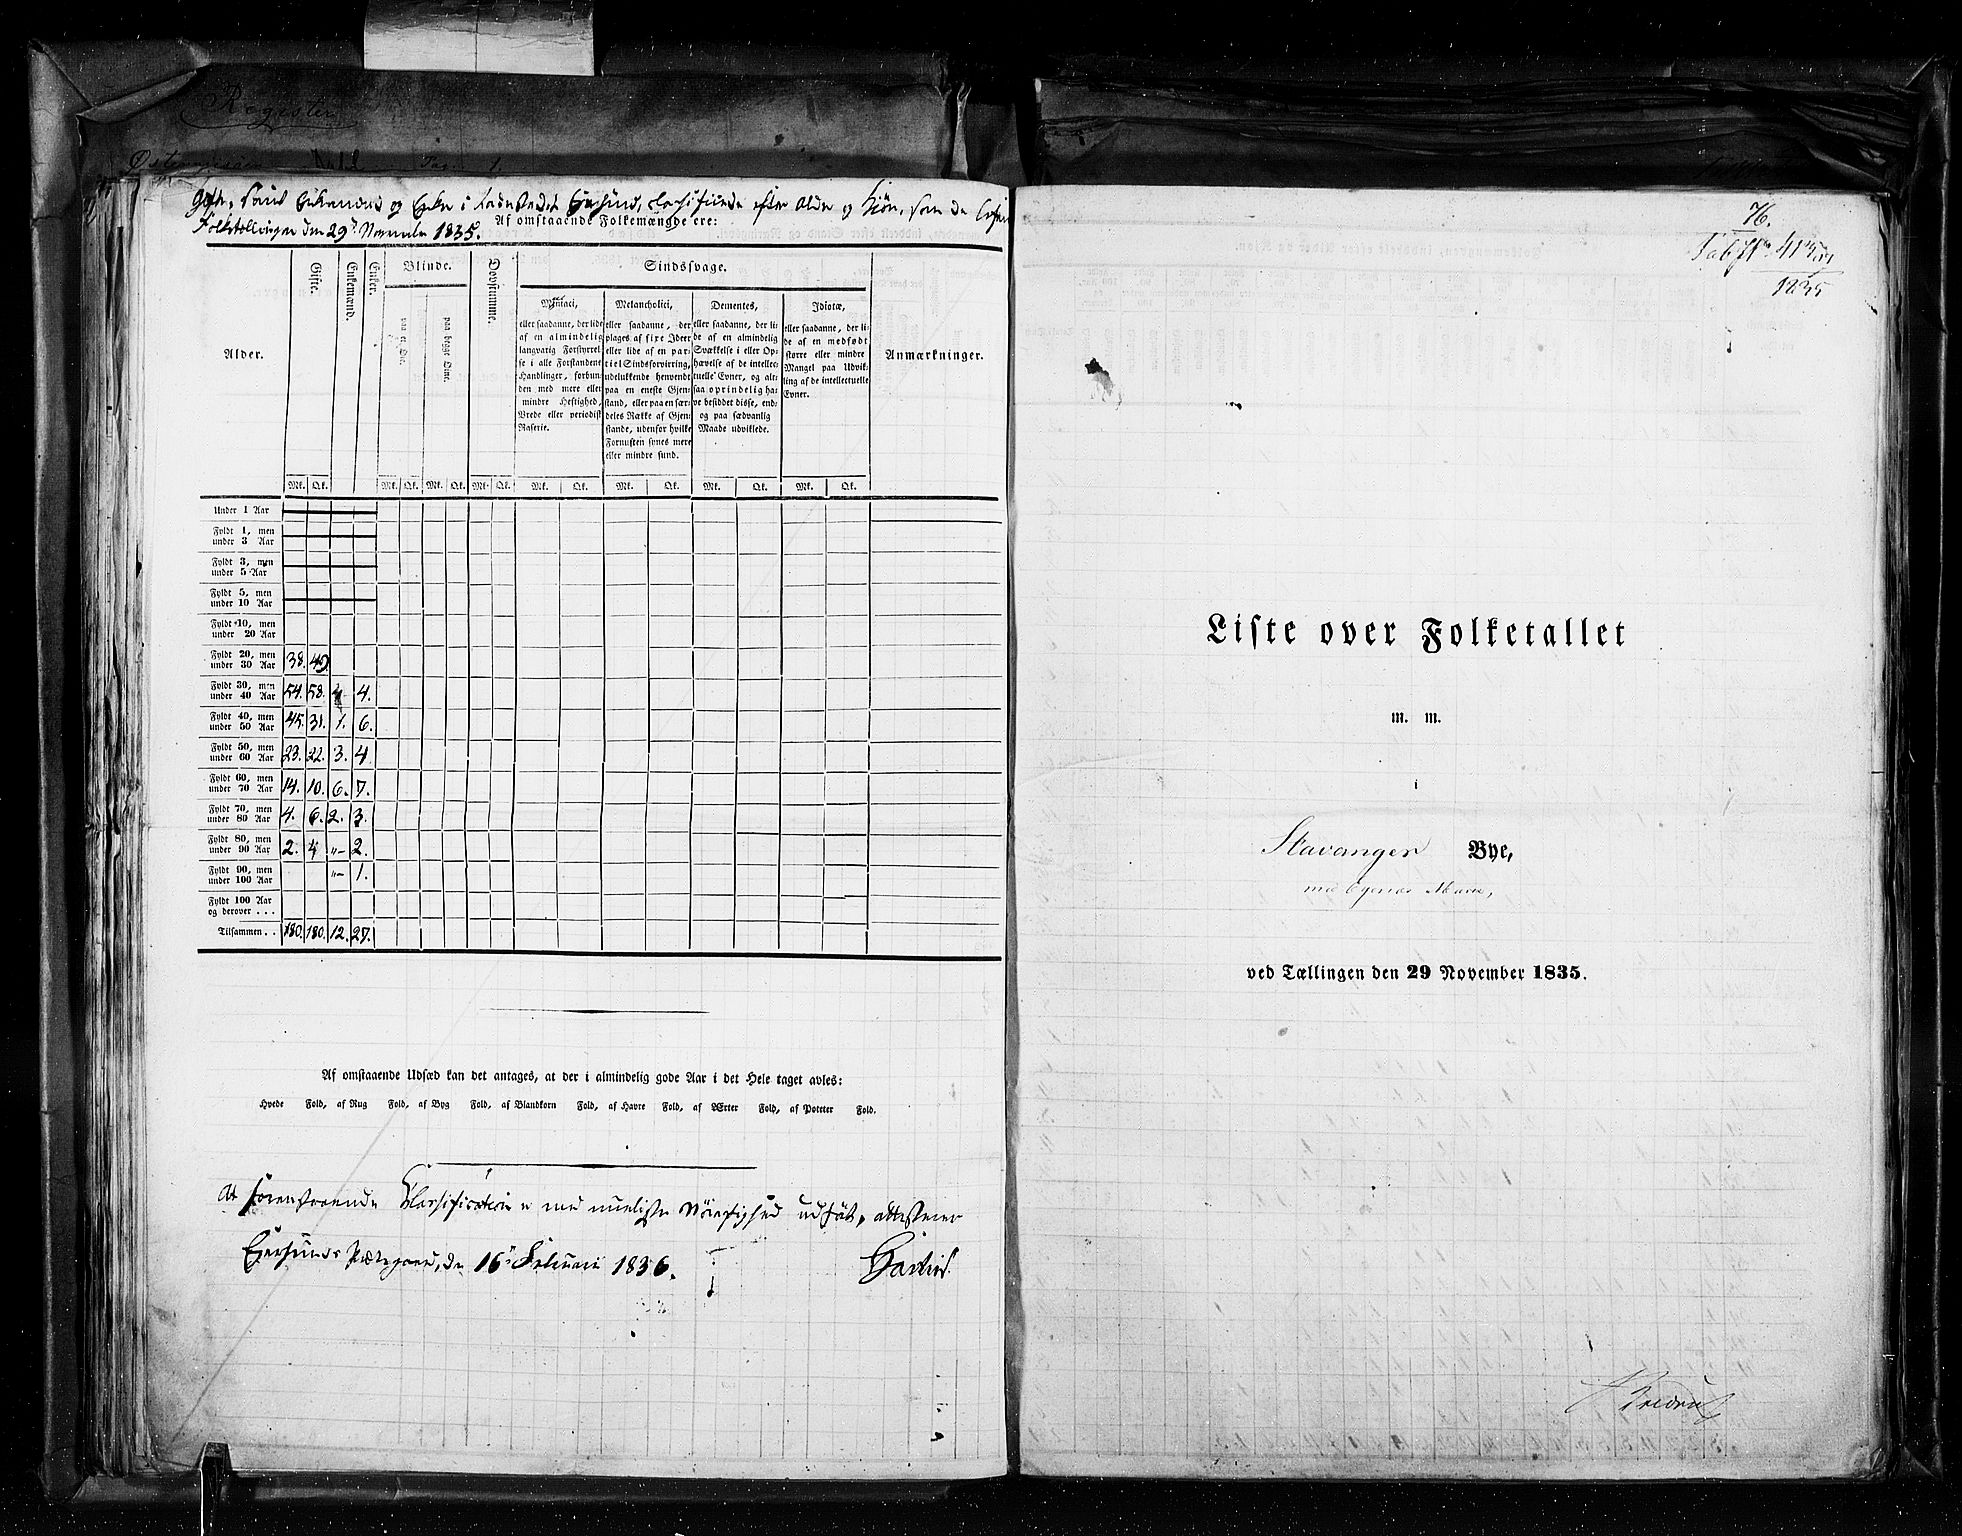 Register
Gifte, samt Enkemænd og Enker i Ladestedet Egersund, classificerede efter Alder og Kjøn, som de befandtes
Af omstaaende Folkemængde ere:
Folketællingen den 29de November 1835.
Alder. Gifte. Enkemænd. Enker. Blinde. Døvstumme. Sindssvage. Anmærkninger.
paa et Øie. paa begge Øine.
Maniaci,
eller saadanne, der lide
af en almindelig
langvarig Forstyrrel-
se i alle Forstandens
Handlinger, forbun-
den med mere eller
mindre Heftighed,
Vrede eller periodisk
Raserie.
Melancholici,
eller saadanne, der
plages af fixe Ideer
eller lide af en par-
tiel Sindsforvirring,
udelukkende henvendt
paa en eneste Gjen-
stand, eller paa en sær-
deles Række af Gjen-
stande, udenfor hvilke
Fornuften synes mere
eller mindre sund.
Dementes,
eller saadanne, der li-
de af en almindelig
Svækkelse i eller Op-
hævelse af de intellec-
tuelle Evner, og alt-
saa oprindelig ha-
ve besiddet disse, end-
og paa sædvanlig
Maade udviklede.
Idiotæ,
eller saadanne, der li-
de af en medfødt
større eller mindre
Mangel paa Udvik-
ling af de intellectuelle
Evner.
Mk. Qk. Mk. Qk. Mk. Qk. Mk. Qk. Mk. Qk. Mk. Qk. Mk. Qk. Mk. Qk.
Under 1 Aar
Fyldt 1, men
under 3 Aar
Fyldt 3, men
under 5 Aar
Fyldt 5, men
under 10 Aar
Fyldt 10, men
under 20 Aar
Fyldt 20, men
under 30 Aar 38. 49.
Fyldt 30, men
under 40 Aar 54. 58. 4.
Fyldt 40, men
under 50 Aar 45. 31. 1. 6.
Fyldt 50, men
under 60 Aar 23. 22. 3. 4
Fyldt 60, men
under 70 Aar 14. 10. 6. 7.
Fyldt 70, men
under 80 Aar 4. 6. 2. 3.
Fyldt 80, men
under 90 Aar 2. 4 "- 2.
Fyldt 90, men
under 100 Aar "- 1.
Fyldt 100 Aar
og derover . . .
Tilsammen . . 180. 180. 12. 27.
Af omstaaende Udsæd kan det antages, at der i almindelig gode Aar i det Hele taget avles:
Hvede Fold, af Rug Fold, af Byg Fold, af Blandkorn Fold, af Havre Fold, af Ærter Fold, af Poteter Fold.
At foranstaaende Classification er med mueligste Nøiagtighed udført, attesterer
Egersunds Præstegaard, den 16de Februari 1836.
76.
1835
Liste over Folketallet
m. m.
i
Stavanger Bye,
med Egenæs Mark,
ved Tællingen den 29 November 1835.